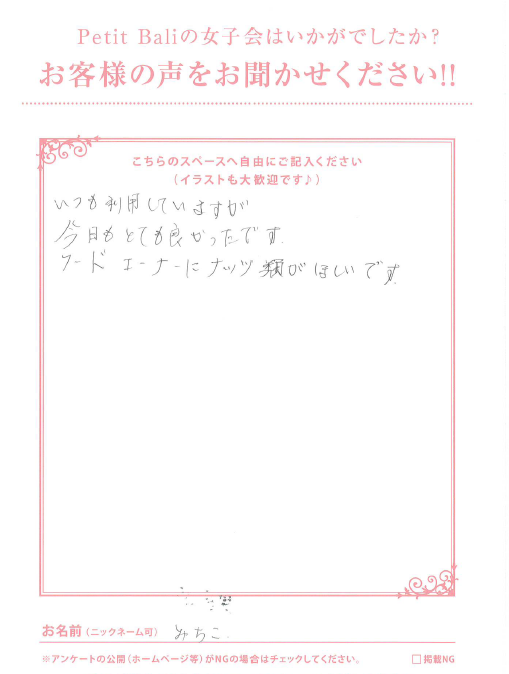 Petit Baliの女子会はいかがでしたか?
お客様の声をお聞かせください!!
こちらのスペースへ自由にご記入ください
(イラストも大歓迎です♪)
いつも利用していますが
今日もとても良かったです.
フードコーナーにナッツ類がほしいです.
お名前(ニックネーム可) みちこ.
※アンケートの公開(ホームページ等)がNGの場合はチェックしてください。 □掲載NG